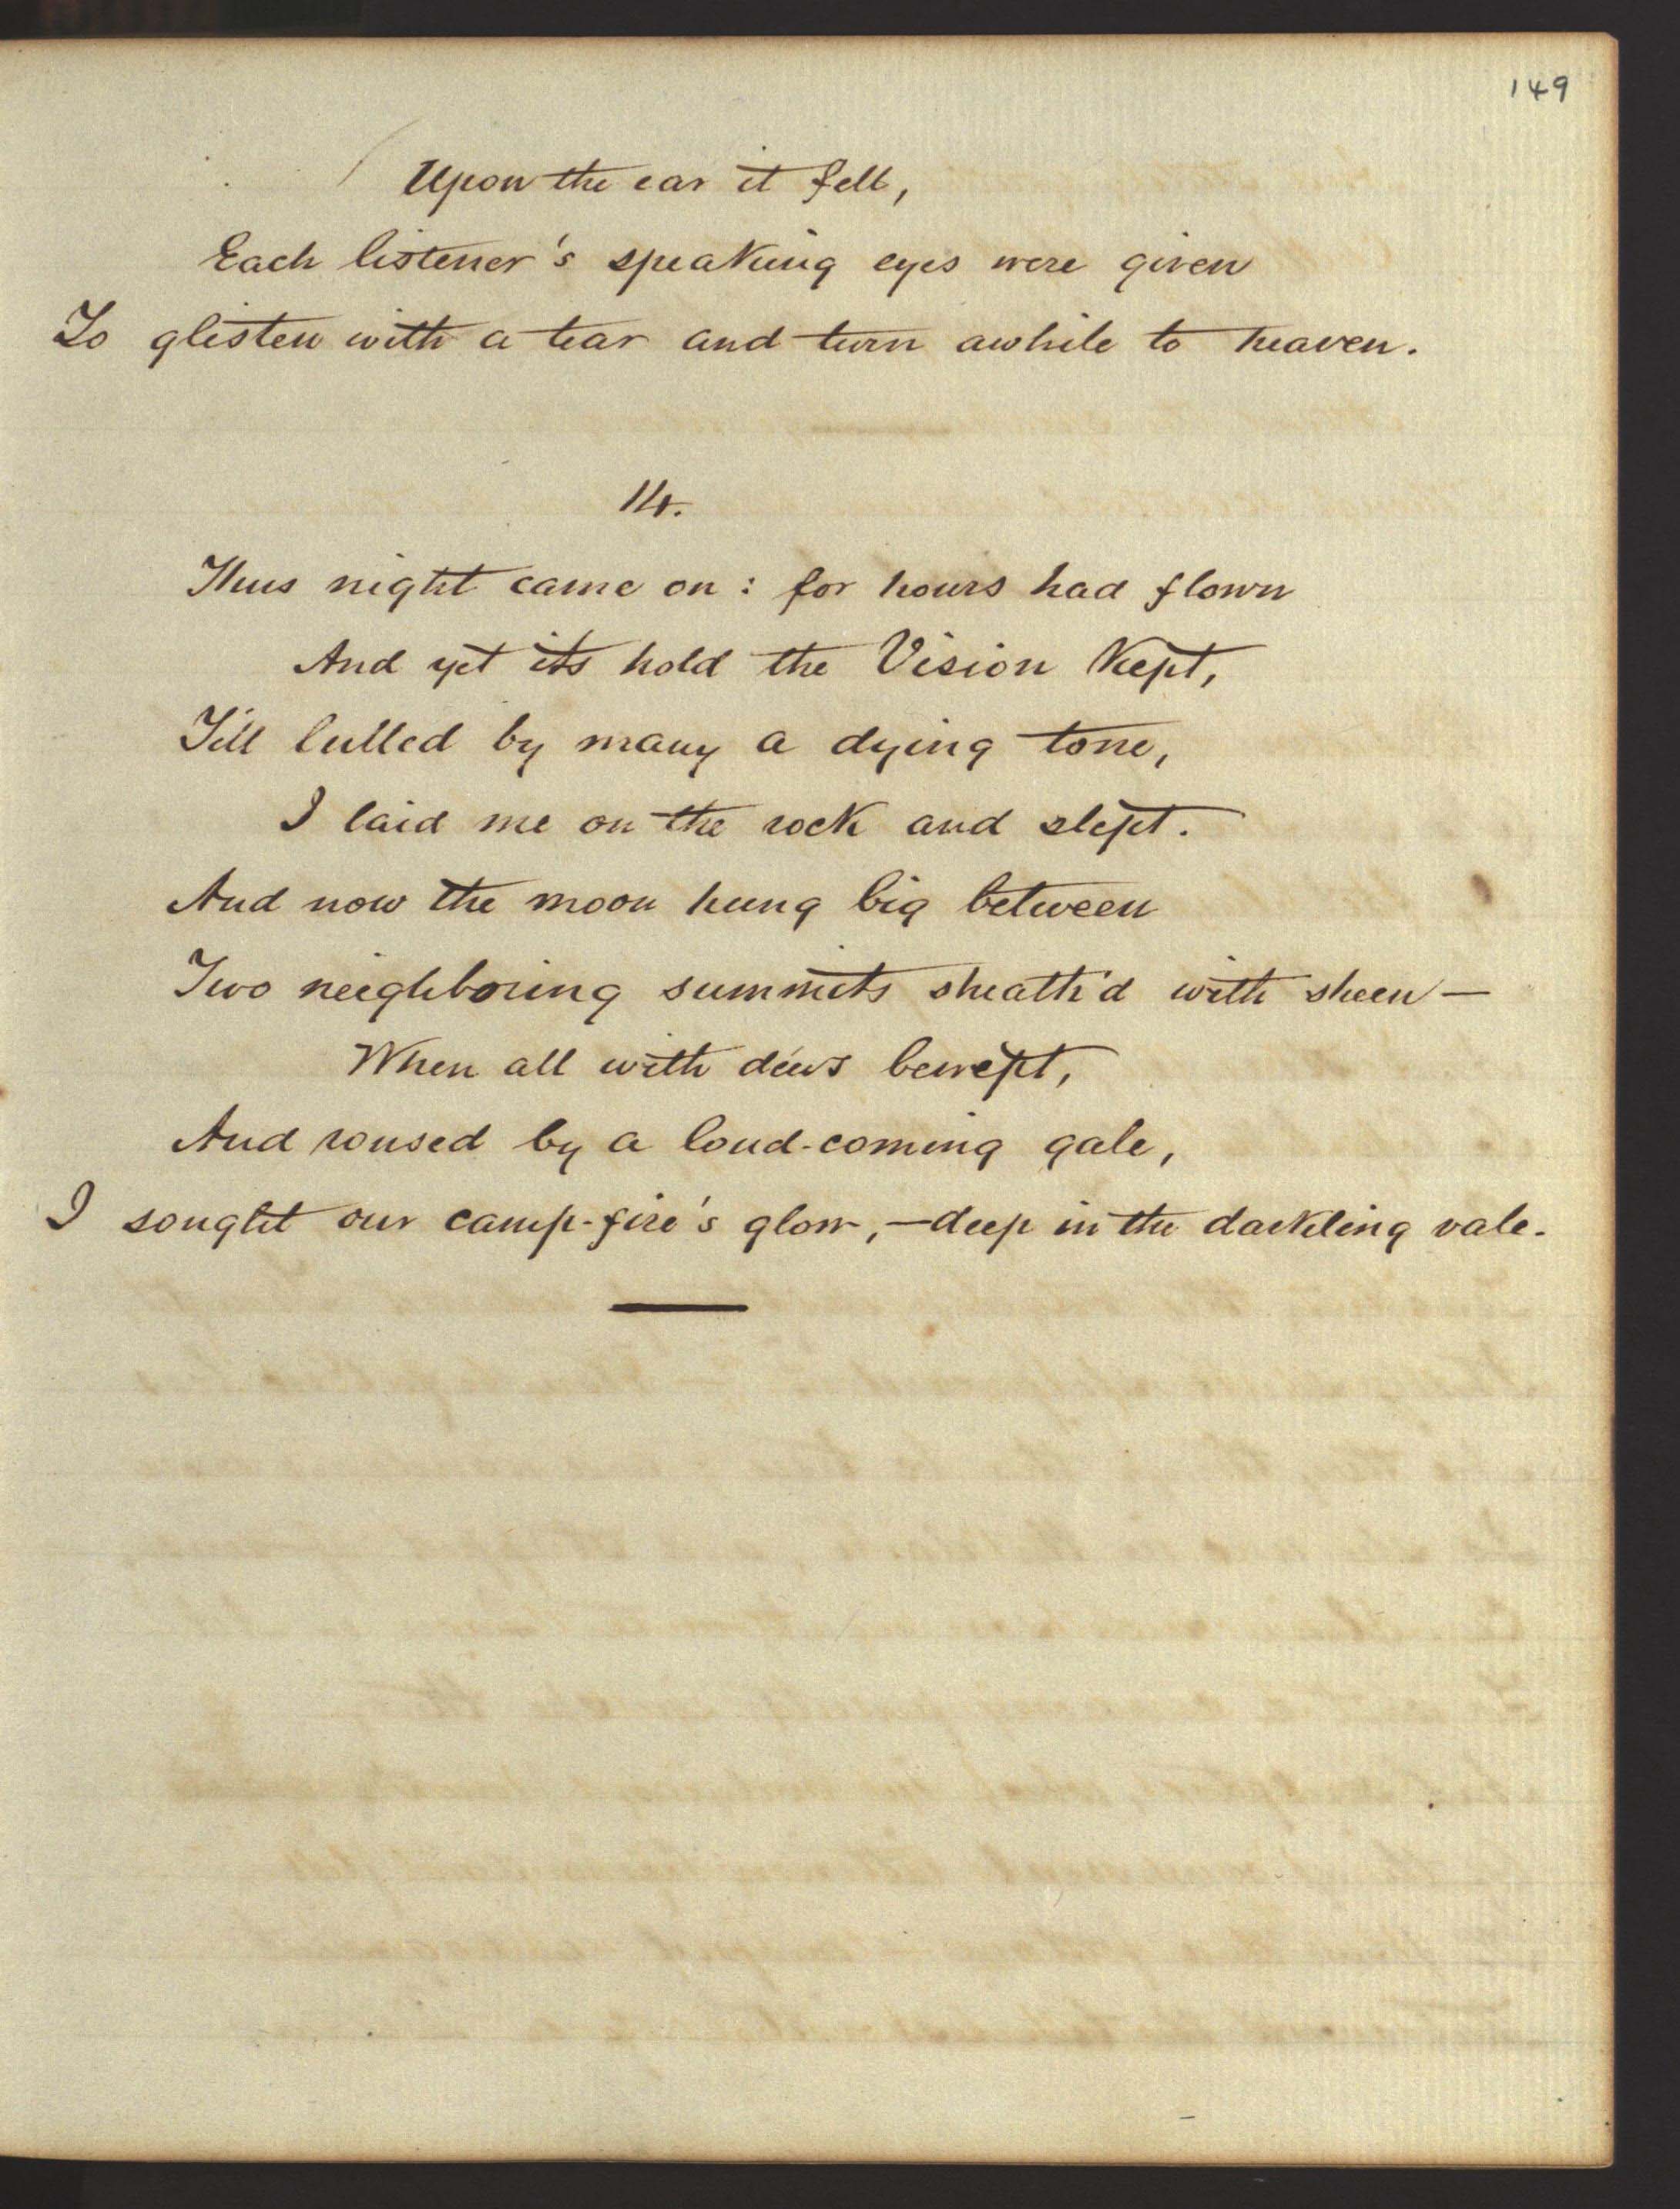 149
Upon the ear it fell,
Each listener's speaking eyes were given
To glisten with a tear and turn awhile to heaven.
14.
Thus night came on: for hours had flown
And yet its hold the Vision kept,
Till lulled by many a dying tone,
I laid me on the rock and slept.
And now the moon hung big between
Two neighboring summits sheath'd with sheen—
When all with dews bewept,
And roused by a loud-coming gale,
I sought our camp-fire's glow,—deep in the darkling vale.